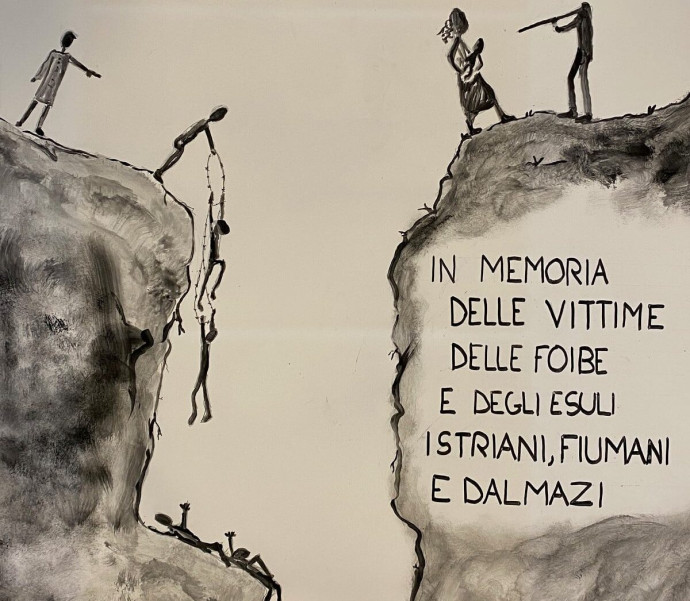 IN MEMORIA
DELLE VITTIME
DELLE FOIBE
E DEGLI ESULI
ISTRIANI, FIUMANI
E DALMAZI